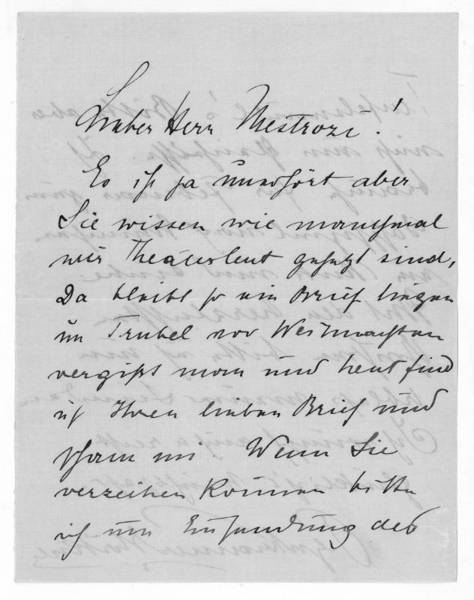 Lieber Herr Mestrozi!
Es ist ja unerhört aber
Sie wissen wie manchmal
wir Theaterleut gehetzt sind,
Da bleibt so ein Brief liegen
im Trubel vor Weihnachten
vergißt man und heut find
ich Ihren lieben Brief und
schäm mi. Wenn Sie
verzeihen können bitte
ich um Einsendung des